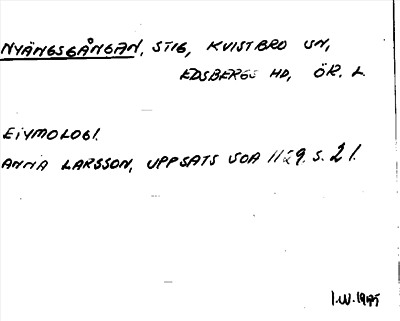 NYÄNGSGÅNGAN, STIG, KVISTBRO SN,
EDSBERGS HD, ÖR. L.
ETYMOLOGI.
ANNA LARSSON, UPPSATS SOA 1129. S. 21.
I.W. 1975